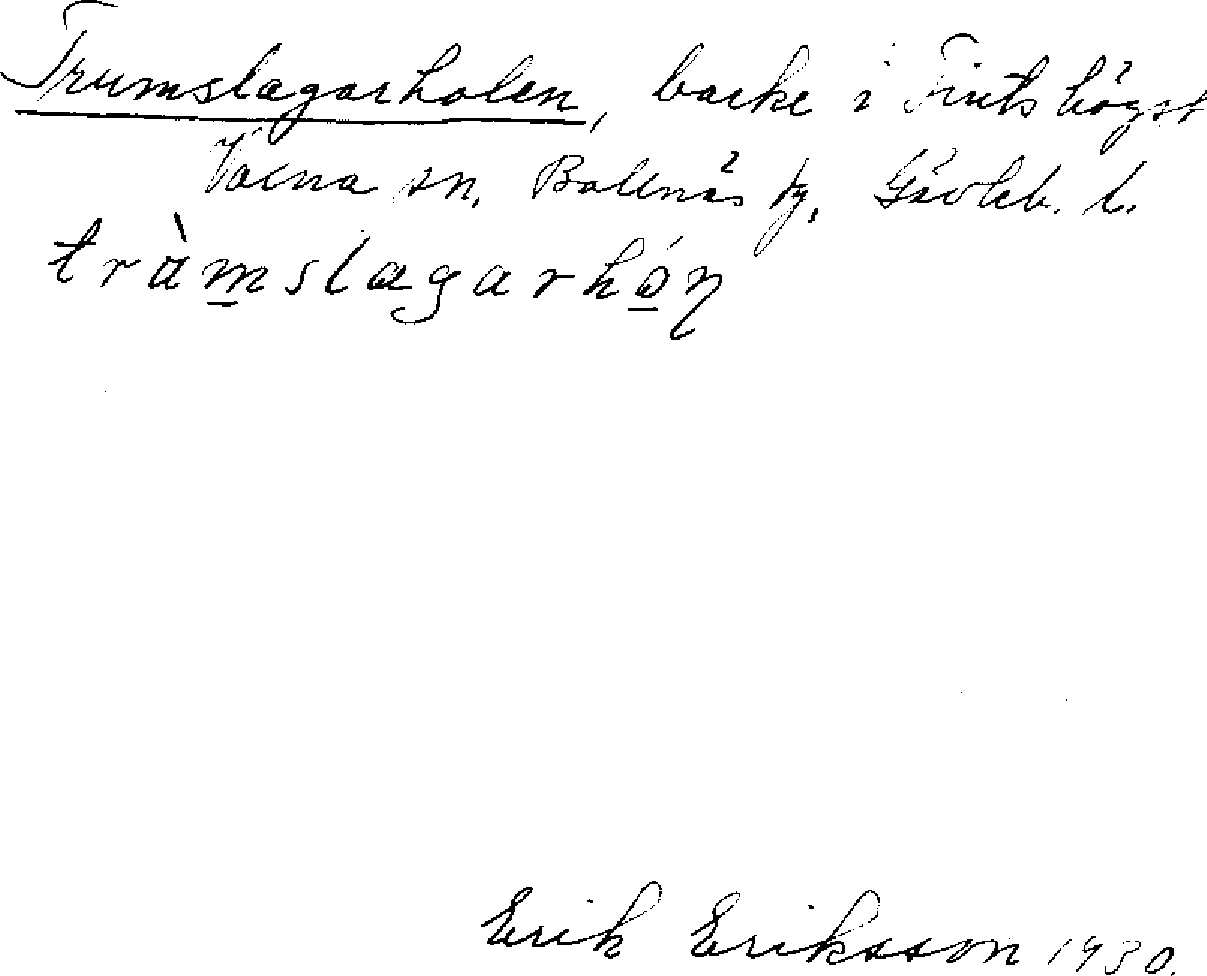 Trumslagarholen, backe i Fints högst
Voxna sn, Bollnäs tg, Gävleb. l.
tràmslagarhón
Erik Eriksson 1930.